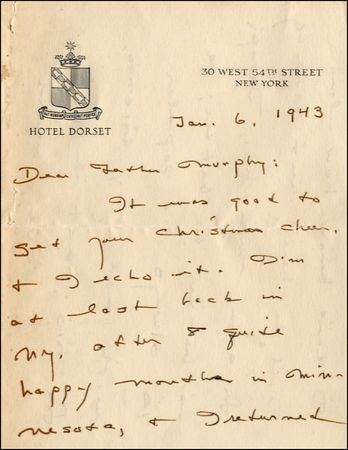 HOTEL DORSET
30 WEST 54TH STREET
NEW YORK
Jan. 6, 1943
Dear Father Murphy:
It was good to
get your Christmas cheer,
& I echo it. I'm
at last back in
NY, after 8 quite
happy months in Min-
nesota, & I returned